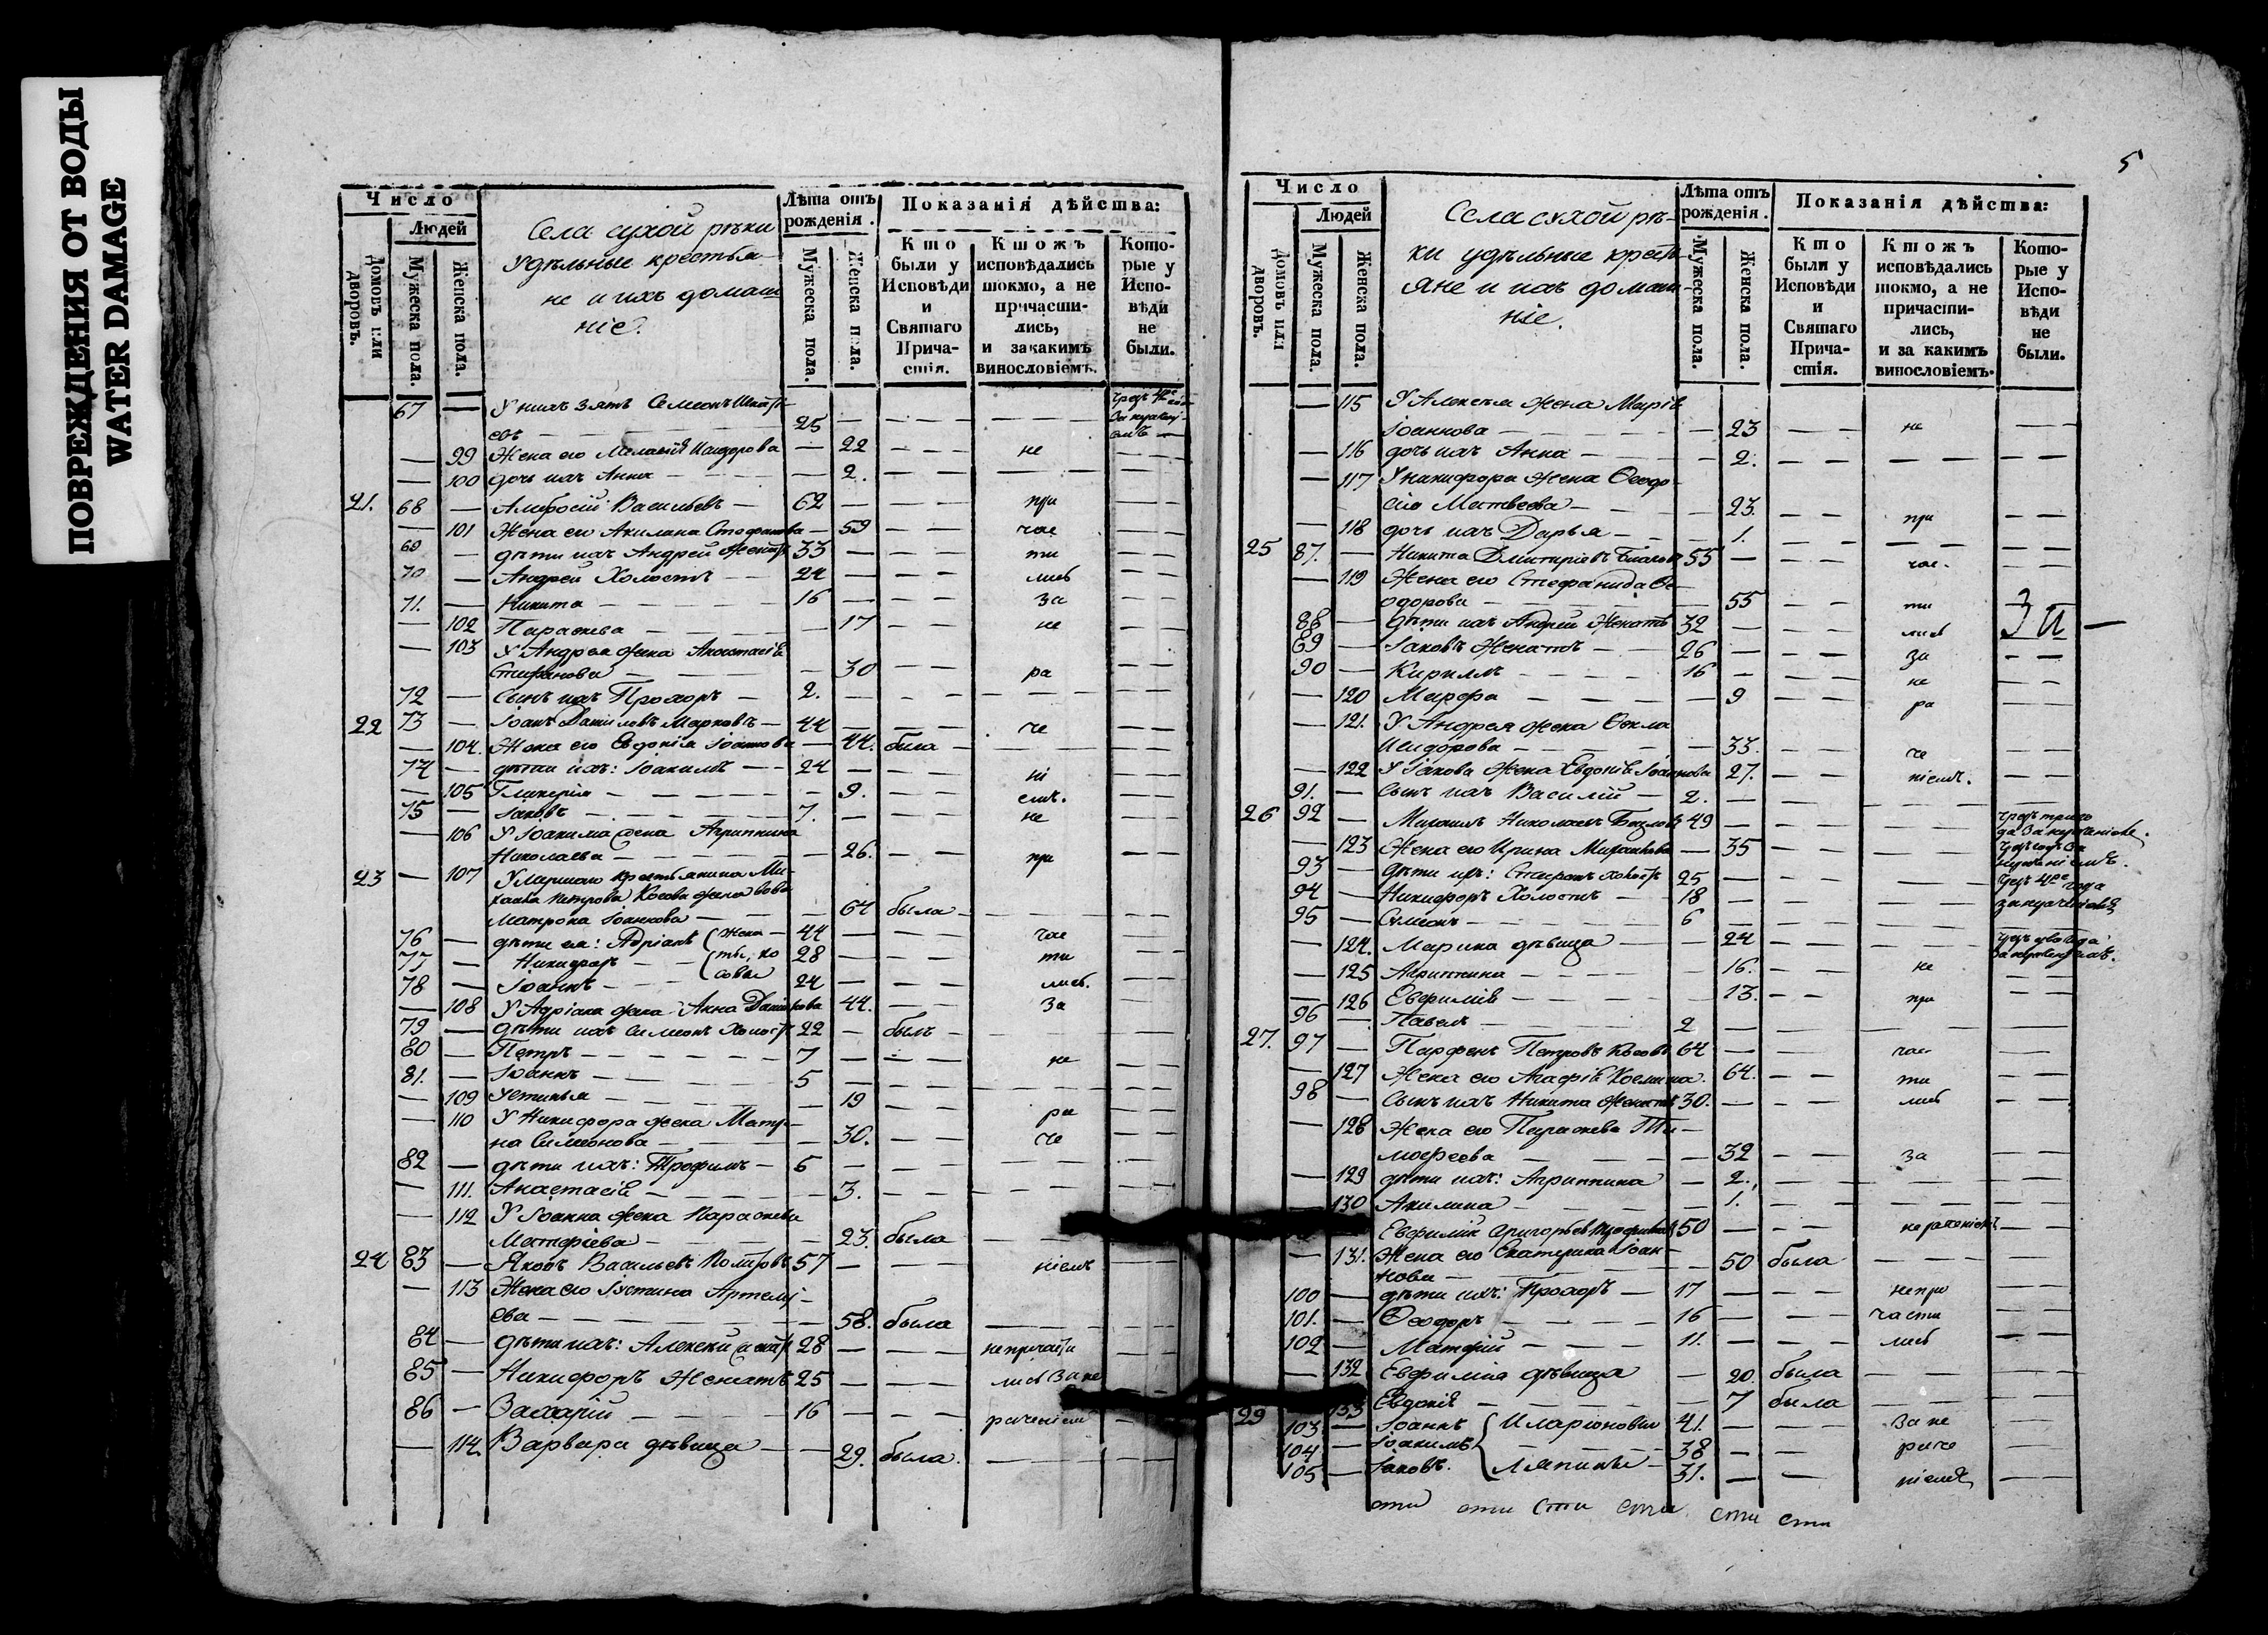 ПОВРЕЖДЕНИЯ ОТ ВОДЫ
WATER DAMAGE
Число
Людей
Домовъ или дворовъ.
Мужеска пола.
Женска пола.
Села сухой рѣки
удѣльные крестья
не и ихъ домаш
ніе.
Лѣта отъ рожденія.
Мужеска пола.
Женска пола.
Показанія дѣйства:
Кто были у Исповѣди и Святаго Прича-стія.
Ктожъ исповѣдались токмо, а не причасти-лись, и за какимъ винословіемъ.
Кото-рые у Испо-вѣди не были.
67 — У нихъ зять Симеонъ
евъ — 25 —
— 99 Жена его Исидорова — 22 не
— 100 дочь ихъ Анна — 2.
21. 68 — Амвросій Васильевъ — 62 — при
— 101 Жена его Акилина — 59 час
69 — дѣти ихъ Андрей женатъ 33 — ти
70 — Андрей Холостъ — 24 — лись
71. — Никита — 16 — за
— 102 Параскева — 17 не
— 103 У Андрея жена Анастасія
Стефанова — 30 ра
72 — Сынъ ихъ Прохоръ — 2. —
22 73 — Іоанъ Даниловъ Марковъ — 44 — че
— 104. Жена его Евдокія Іоаннова — 44. была —
74 — дѣти ихъ: Іоакимъ — 24 — ні
— 105 Гликерія — 9. емъ.
75 — Іаковъ — 7. — не
— 106 У Іоакима жена Агрипина
Николаева — 26. при
23 — 107 Умершаго крестьянина Ми-
хаила Петрова Косова жена вдова
Матрона Іоаннова — 64 была —
76 — дѣти ея: Адріанъ (жена — 44 — час
77 — Никифоръ — (ты, ко 28 — ти
78 — Іоаннъ — (совы 24 — лись.
— 108 У Адріана жена Анна Данилова 44. — за
79 — дѣти ихъ Симеонъ Холостъ 22 — былъ —
80 — Петръ — 7 — не
81. — Іоаннъ — 5 —
— 109 Устинья — 19 — ра
— 110 У Никифора жена Матро-
на Симеонова — 30. — че
82 — дѣти ихъ: Трофимъ — 6 —
— 111. Анастасія — 3. —
— 112 У Іоанна жена Параскева
Матфіева — 23. была —
24 83 — Яковъ Васильевъ 57 — ніемъ
— 113 Жена его Іустина Артемі-
ева — 58. была —
84 — дѣти ихъ: Алексѣй женатъ 28 — непричасти
85 — Никифоръ Женатъ 25 — лись за не
86 — Захарій — 16 — раченіем
— 114 Варвара дѣвица — 29. была. —
5
Число
Людей
Домовъ или дворовъ.
Мужеска пола.
Женска пола.
Села сухой рѣ-
ки удѣльные крест
яне и ихъ домаш
ніе.
Лѣта отъ рожденія.
Мужеска пола.
Женска пола.
Показанія дѣйства:
Кто были у Исповѣди и Святаго Прича-стія.
Ктожъ исповѣдались токмо, а не причасти-лись, и за какимъ винословіемъ.
Кото-рые у Испо-вѣди не были.
— 115 У Алексѣя жена Марія
Іоаннова — 23 не
— 116 дочь ихъ Анна — 2.
— 117 У никифора жена Ѳеодо-
сія Матвеева — 23.
— 118 дочь ихъ Дарья — 1. при
25 87. — Никита Дмитріевъ 55 — час.
— 119 Жена его Стефанида Ѳе-
одорова — 55 ти
88 — дѣти ихъ Андрей Женатъ 32 — лись
89 — Іаковъ Женатъ — 26 — за
90 — Кириллъ — 16 — не
— 120 Марфа — 9 ра
— 121. У Андрея жена Ѳекла
Исидорова — 33. че
— 122 У Іакова жена Евдокія Іоаннова 27. ніемъ.
91. — Сынъ ихъ Василій — 2. —
26 92 — Михаилъ Николаевъ 49 —
— 123 Жена его Ирина Михайлова — 35
93 — дѣти ихъ: холостъ 25 —
94 — Никифоръ Холостъ — 18 —
95 — Симеонъ — 6
— 124. Марина дѣвица — 24
— 125 Агрипина — 16. — не
— 126 Евфимія — 13. — при
96 — Павелъ — 2 —
27. 97 — Парфенъ Петровъ Косовъ 64 — час
— 127 Жена его Агафія Космина. 64. — ти
98 — Сынъ ихъ Никита Женатъ 30. — лись
— 128 Жена его Параскева Ти-
мофеева — 32 — за
— 129 дѣти ихъ: Агрипина — 2.
130 Акилина — 1.
Евфимій Григорьевъ 50 — нераченіемъ
— 131. Жена его Екатерина Іоан-
нова — 50 была
100 — дѣти ихъ: Прохоръ — 17 — непри
101. — Ѳеодоръ — 16 — части
102 — Матфій — 11. — лись
— 132 Евфимія дѣвица — 20. была
133 Евдокія — 7 была
29 103 — Іоаннъ { Иларіоновы 41. — за не
104 — Іоакимъ 38 — раче
105 — Іаковъ. 31. — ніемъ
сти сти сти сти сти сти